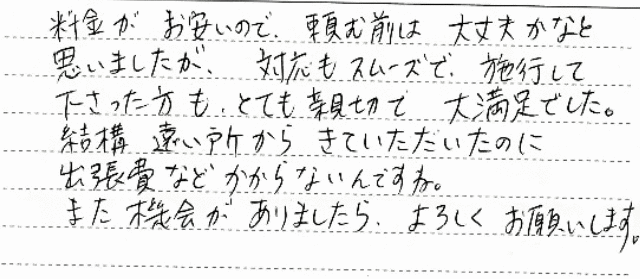 料金が お安いので、頼む前は 大丈夫かなと
思いましたが、対応もスムーズで、施行して
下さった方も、とても親切で 大満足でした。
結構 遠い所から きていただいたのに
出張費など かからないんですね。
また機会が ありましたら、よろしく お願いします。